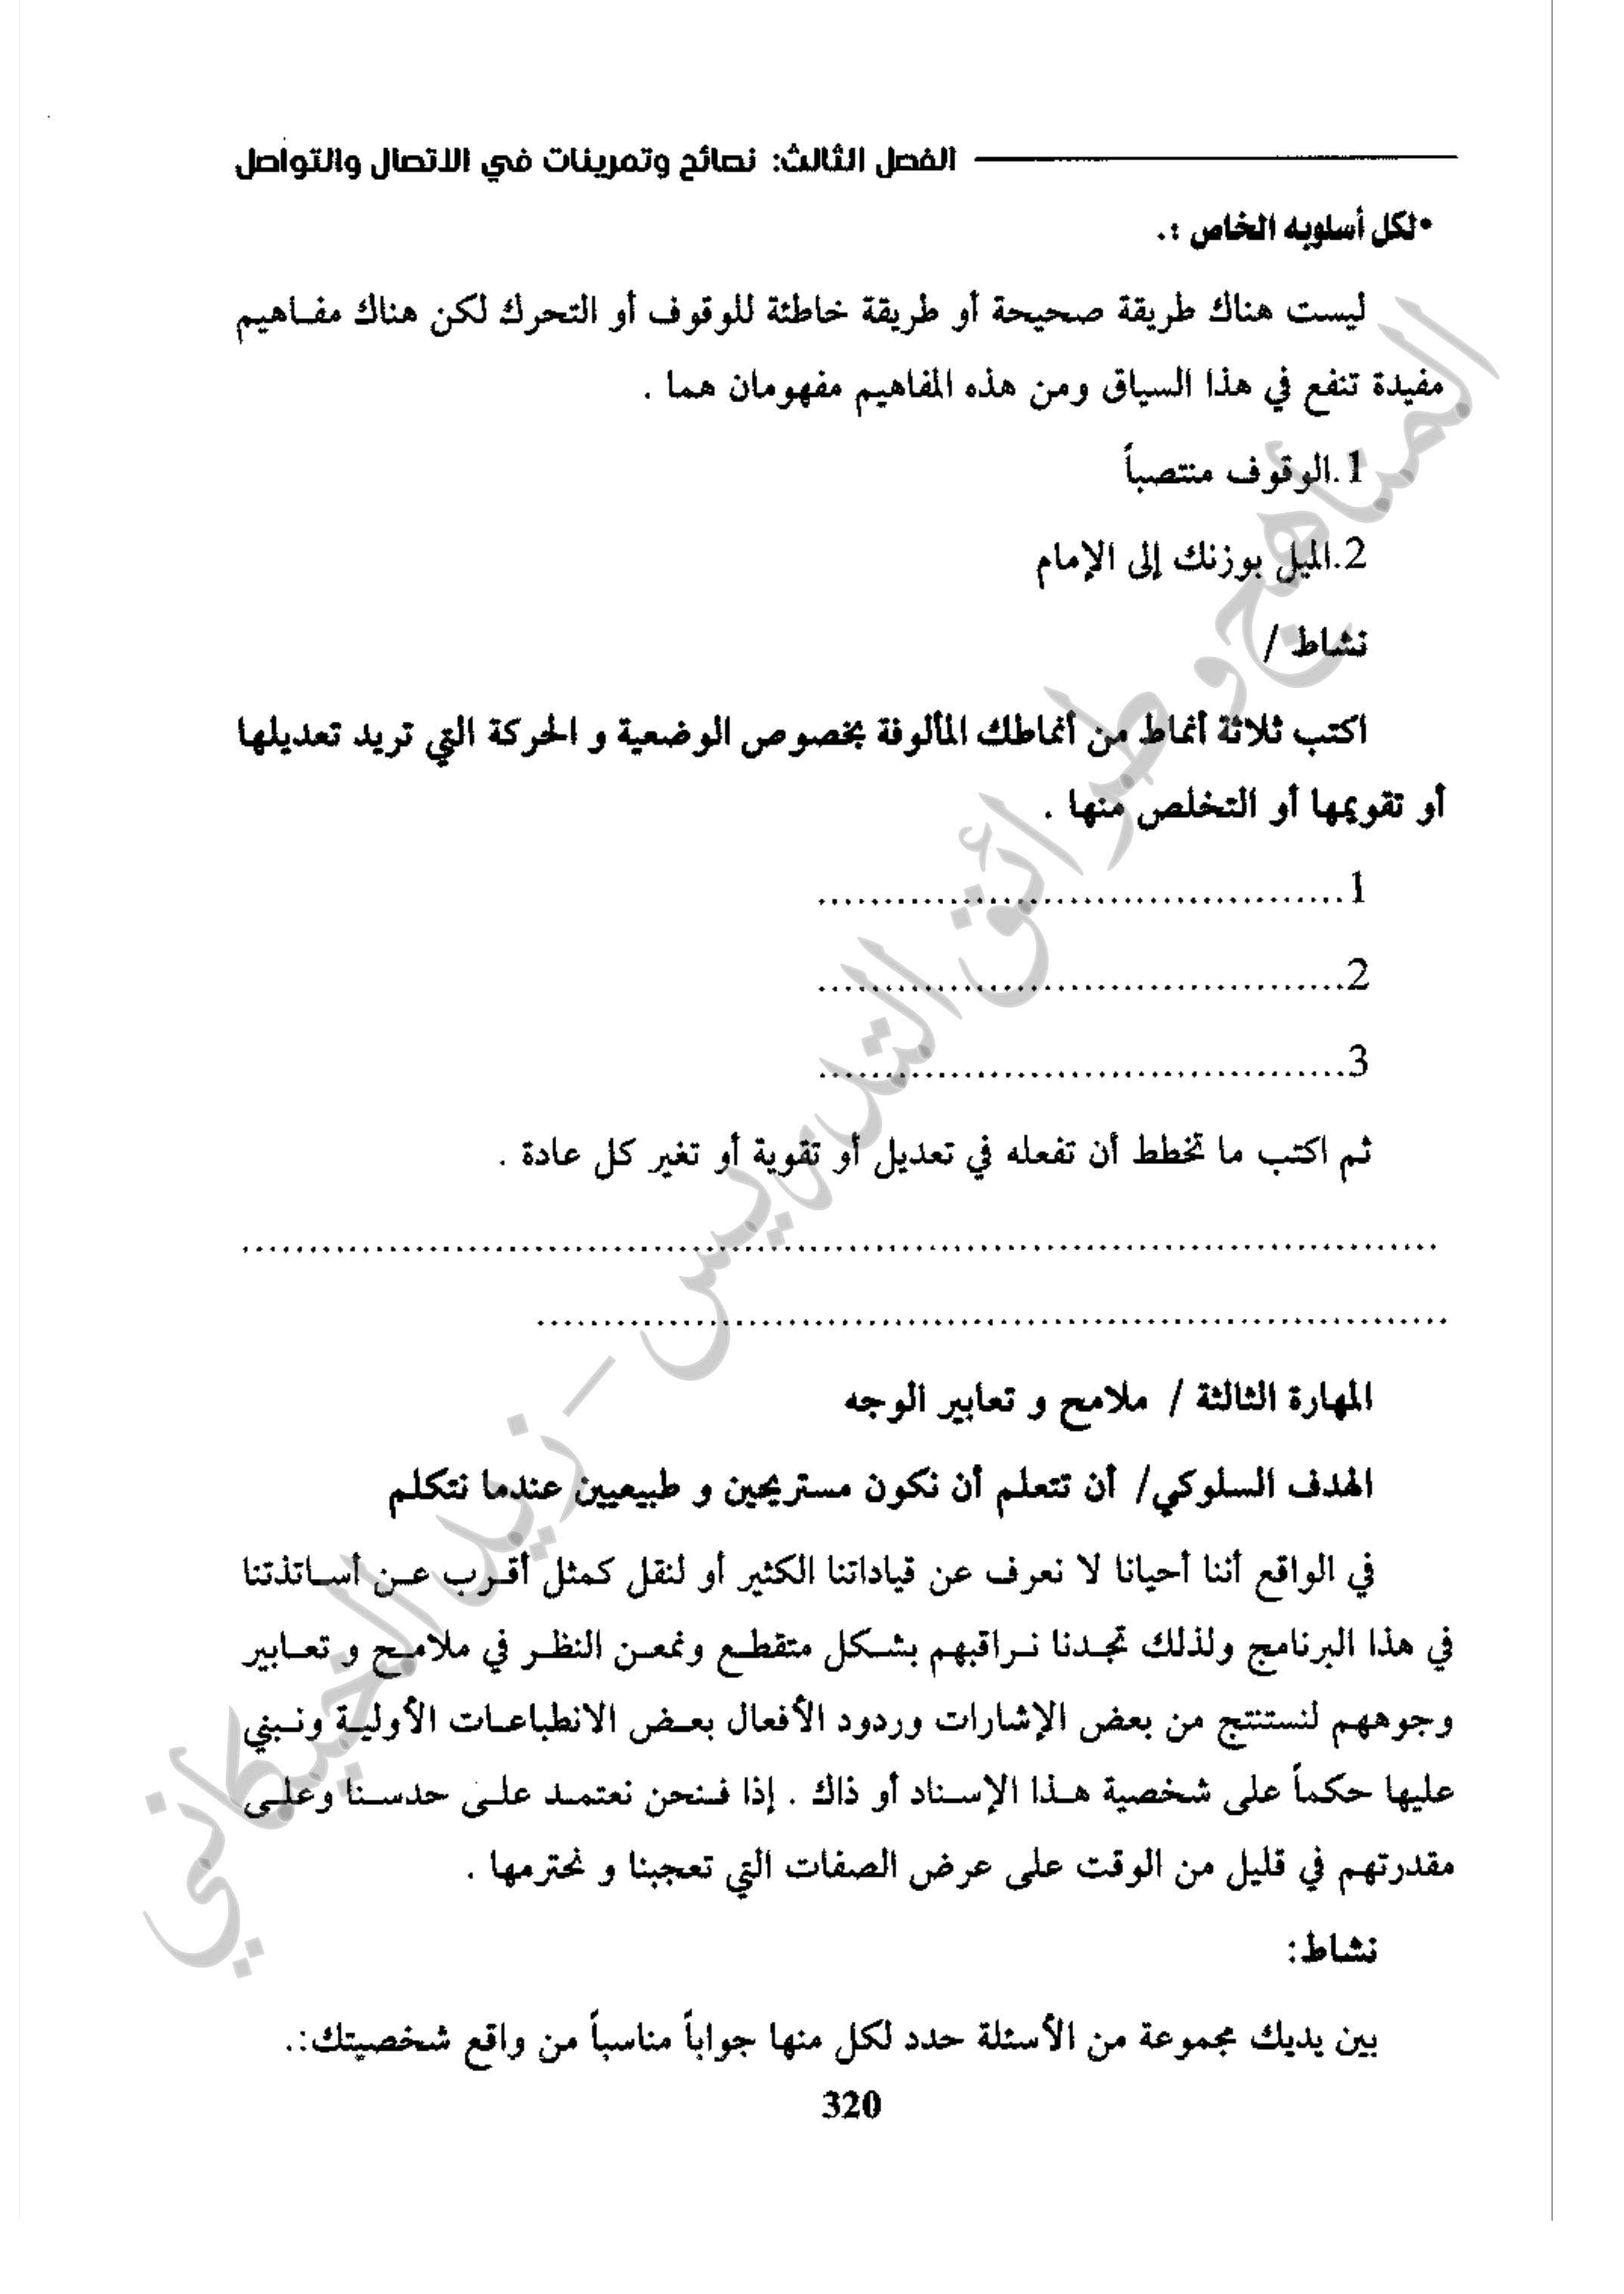 الفصل الثالث: نصائح وتمرينات في الاتصال والتواصل
•لكل أسلوبه الخاص :.
ليست هناك طريقة صحيحة أو طريقة خاطئة للوقوف أو التحرك لكن هناك مفــاهيم
مفيدة تنفع في هذا السياق ومن هذه المفاهيم مفهومان هما .
1.الوقوف منتصباً
2.الميل بوزنك إلى الإمام
نشاط /
اكتب ثلاثة أنماط من أنماطك المألوفة بخصوص الوضعية و الحركة التي تريد تعديلها
أو تقويمها أو التخلص منها .
1........................................
2........................................
3........................................
ثم اكتب ما تخطط أن تفعله في تعديل أو تقوية أو تغير كل عادة .
..........................................................................................
.....................................................................
المهارة الثالثة / ملامح و تعابير الوجه
الهدف السلوكي/ أن تتعلم أن نكون مستريحين و طبيعيين عندما نتكلم
في الواقع أننا أحيانا لا نعرف عن قياداتنا الكثير أو لنقل كمثل أقــرب عــن أســاتذتنا
في هذا البرنامج ولذلك تجـدنا نــراقبهم بشــكل متقطــع ونمعــن النظــر في ملامــح و تعــابير
وجوههم لنستنتج من بعض الإشارات وردود الأفعال بعــض الانطباعــات الأوليــة ونــبني
عليها حكماً على شخصية هــذا الإســناد أو ذاك . إذا فــنحن نعتمــد علــى حدســنا وعلــى
مقدرتهم في قليل من الوقت على عرض الصفات التي تعجبنا و نحترمها .
نشاط:
بين يديك مجموعة من الأسئلة حدد لكل منها جواباً مناسباً من واقع شخصيتك:.
320
المناهج و طرائق التدريس – زيد الخيكاني